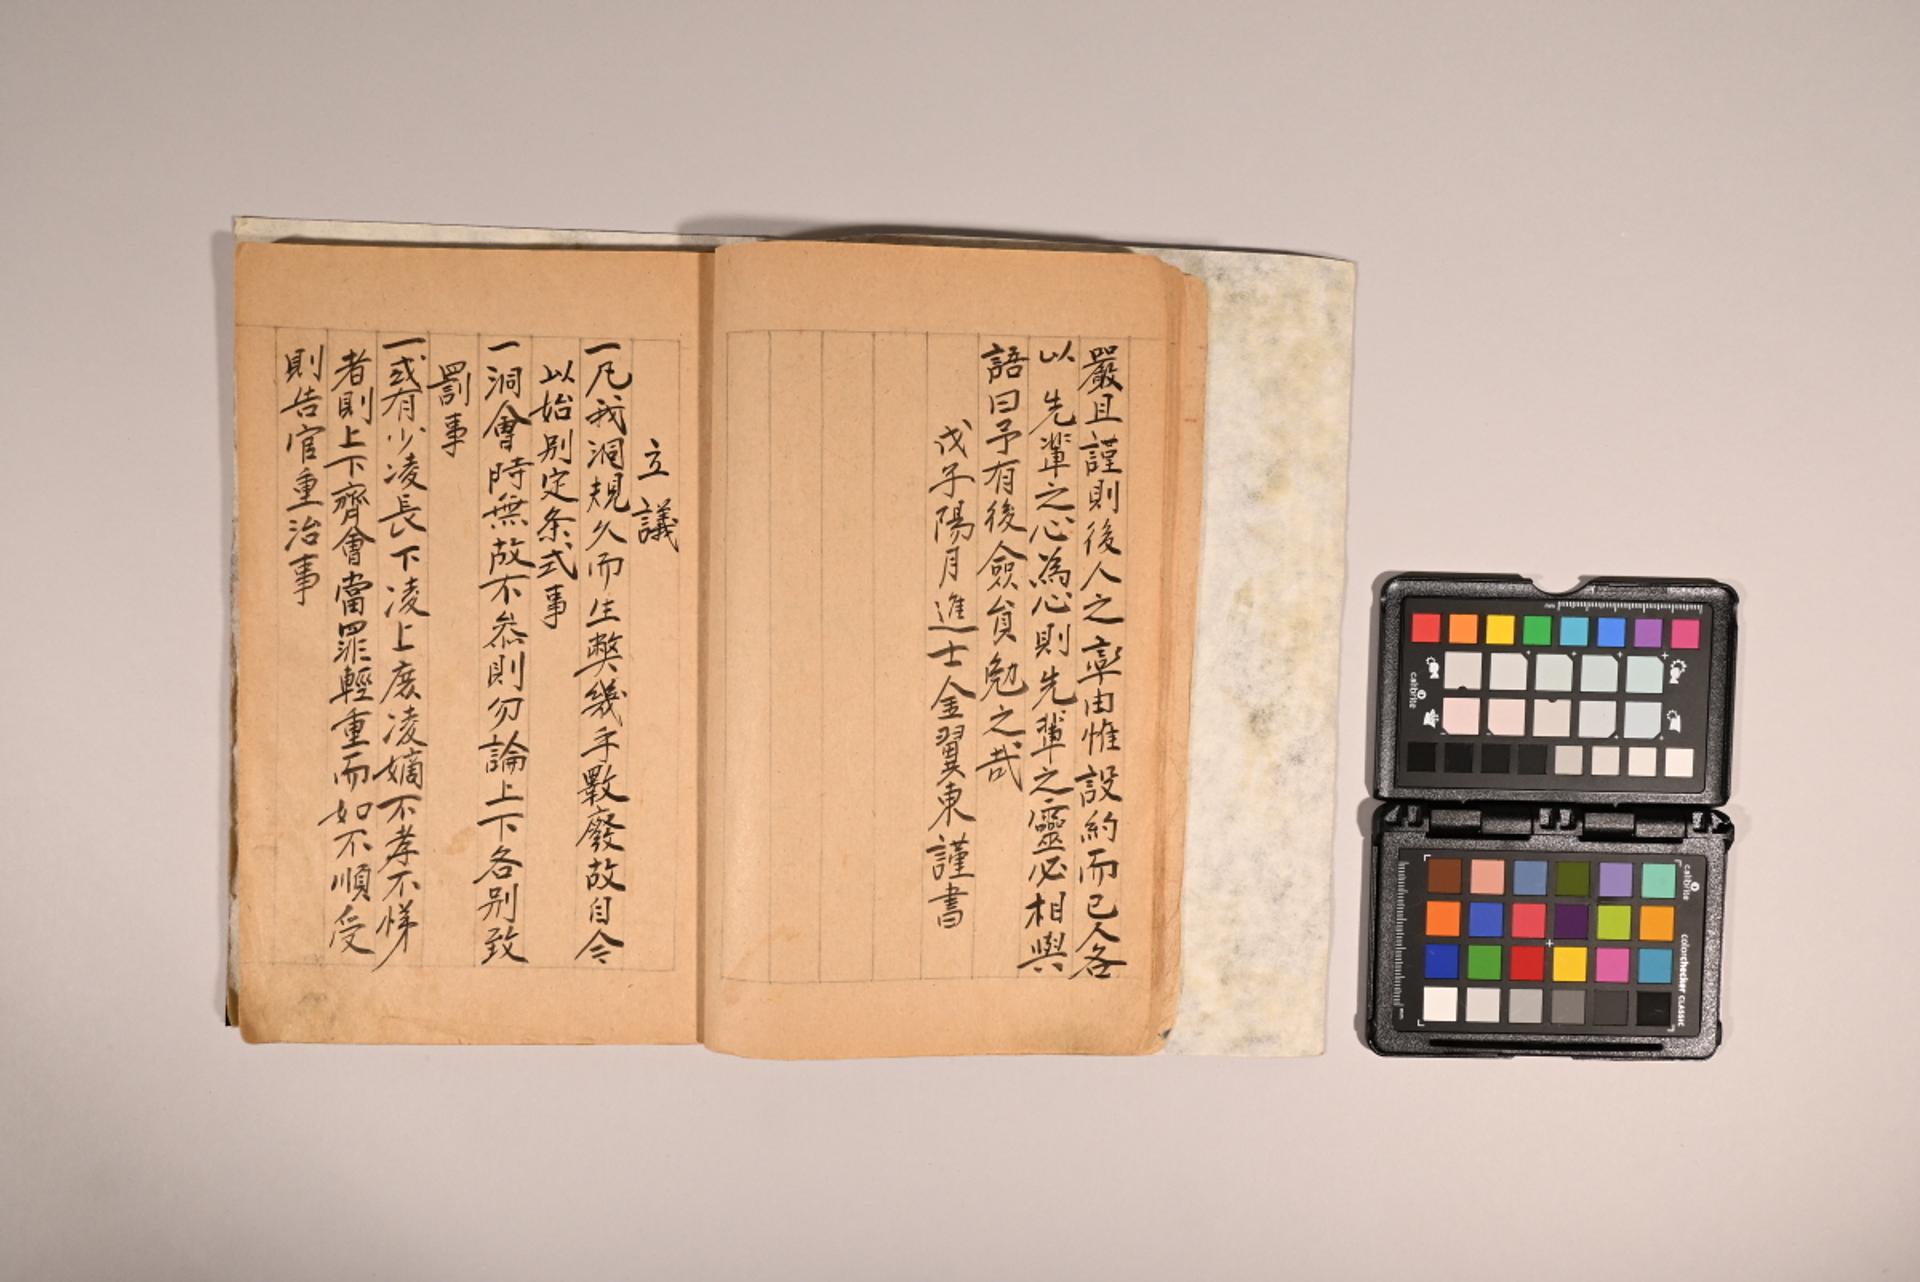 嚴且謹則後人之率由惟設約而已人各
以 先輩之心為心則先輩之靈必相與
語曰予有後僉員勉之哉
戊子陽月進士金翼東謹書
立議
一凡我洞規久而生弊幾乎斁廢故自今
以始別定条式事
一洞會時無故不叅則勿論上下各別致
罰事
一或有少凌長下凌上庶凌嫡不孝不悌
者則上下齊會當罪輕重而如不順受
則告官重治事
calibrite
calibrite
colorchecker CLASSIC
mm